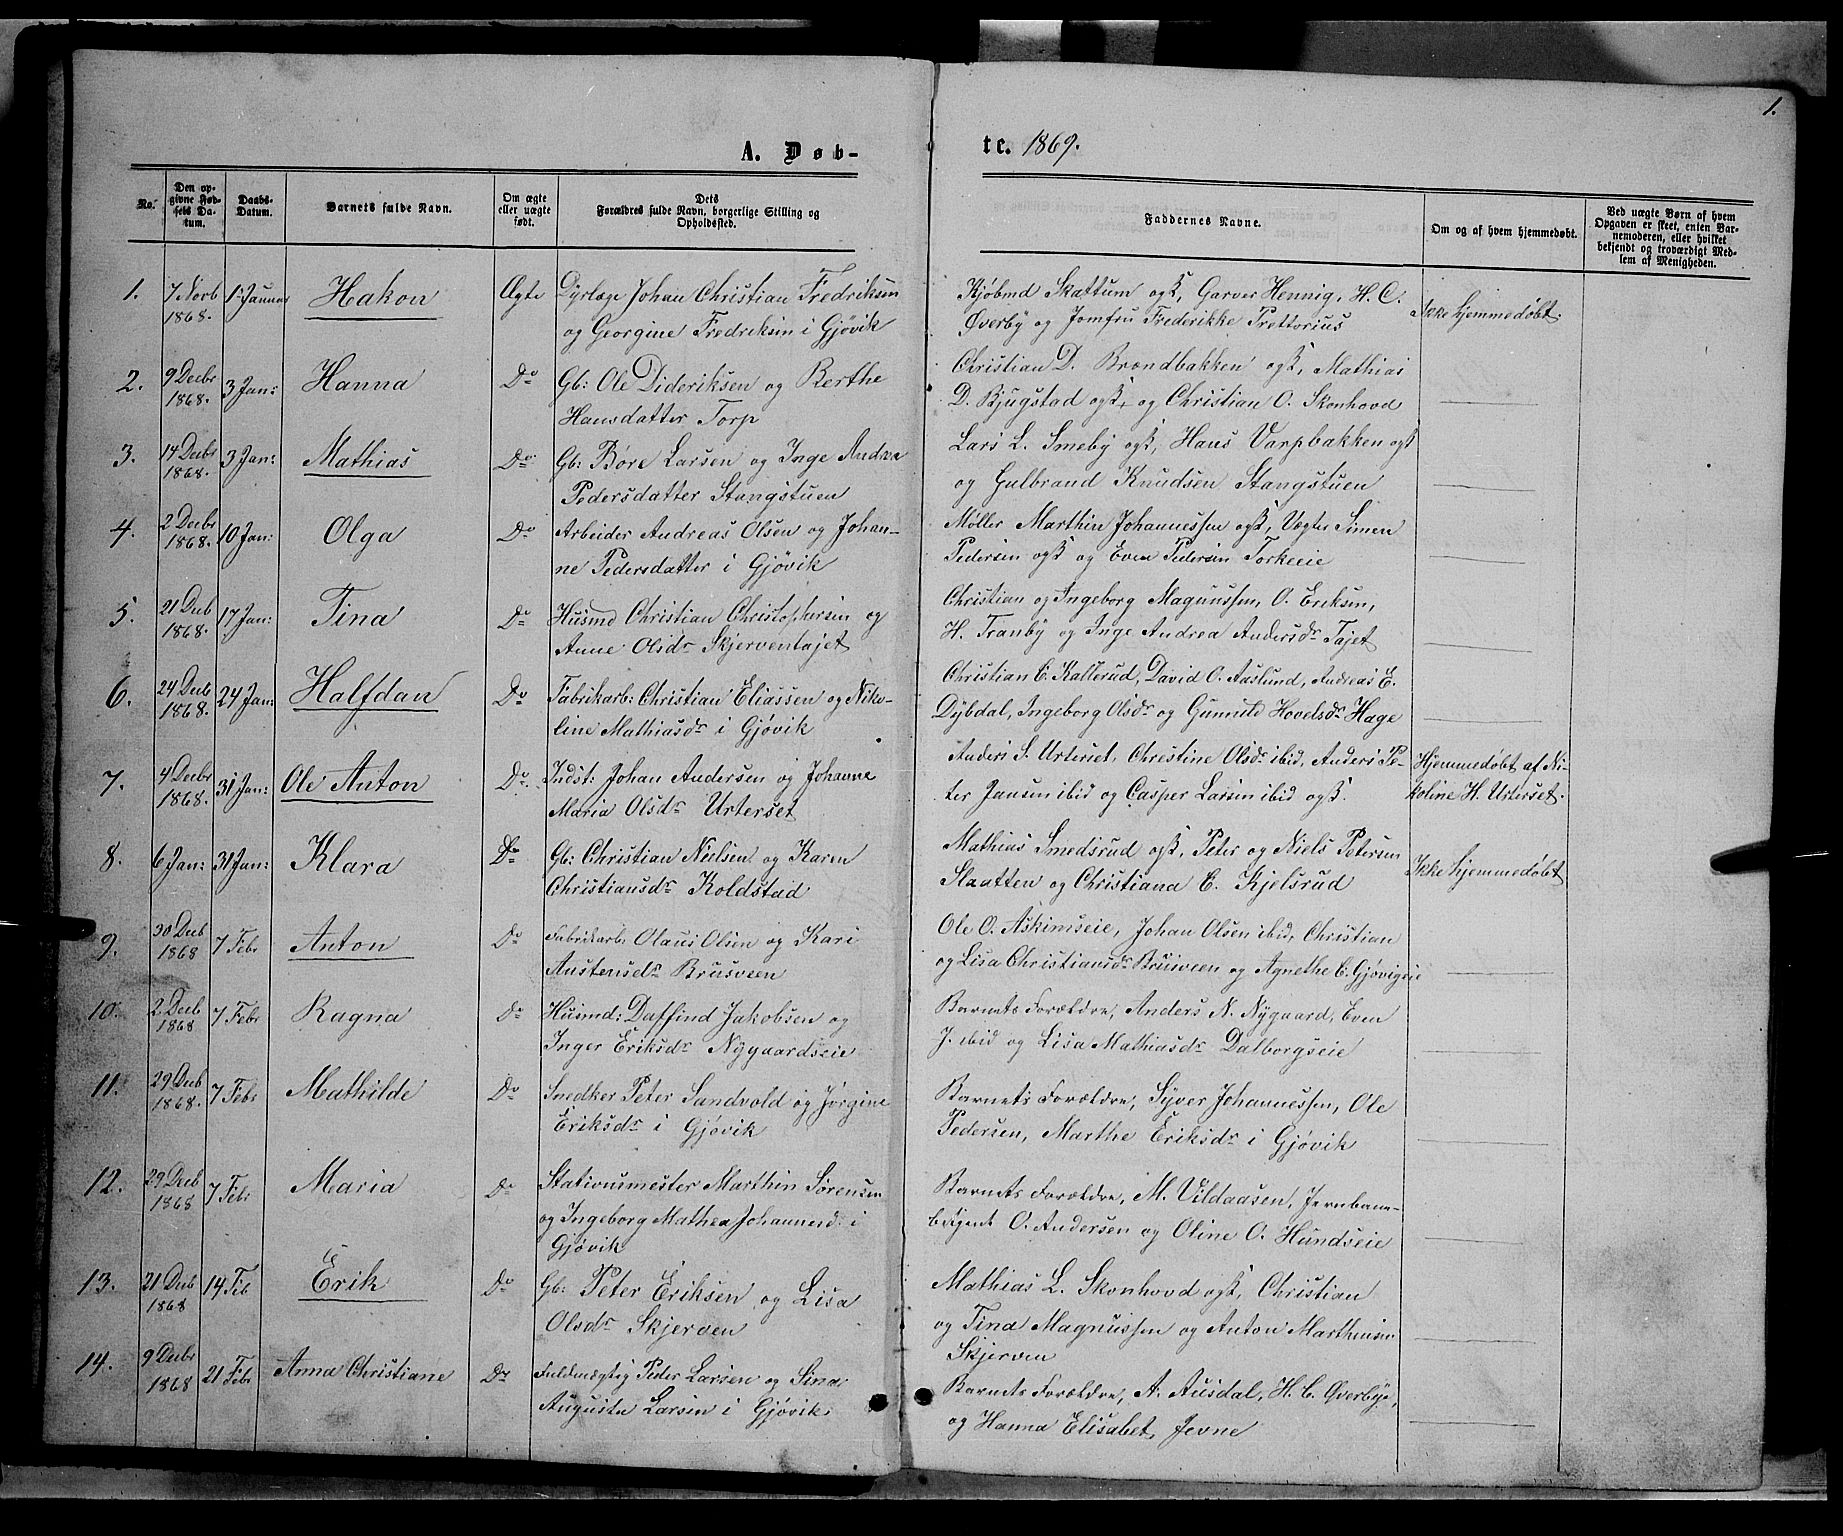 1.
A. Døb-
te. 1869.
No.
Den op-
givne Fød-
sels Da-
tum.
Daabs-
Datum.
Barnets fulde Navn.
Om ægte
eller uægte
født.
Dets
Forældres fulde Navn, borgerlige Stilling og
Opholdssted.
Faddernes Navne.
Om og af hvem hjemmedøbt.
Ved uægte Børn af hvem
Opgaven er skeet, enten Bar-
nemoderen, eller hvilket
bekjendt og troværdigt Med-
lem af Menigheden.
1. 7 Novb 1868. 1 Januar Hakon Ægte
Dyrlæge Johan Christian Fredriksen
og Georgine Fredriksen i Gjøvik
Kjøbmd Skattum ogß, Garver Hennig, H. C.
Øverby og Jomfru Frederikke Prettorius
Ikke hjemmedøbt.
2. 9 Decbr 1868. 3 Jan: Hanna Do
Gb: Ole Dideriksen og Berthe
Hansdatter Torp
Christian D. Brændbakken ogß, Mathias
D. Bjugstad ogß, og Christian O. Skonhovd
3. 14 Decbr 1868. 3 Jan: Mathias Do
Gb: Børe Larsen og Inge Andrea
Pedersdatter Stangstuen
Lars L. Smeby ogß, Hans Varpbakken ogß
og Gulbrand Knudsen Stangstuen
4. 2 Decbr 1868. 10 Jan: Olga Do
Arbeider Andreas Olsen og Johan-
ne Pedersdatter i Gjøvik
Møller Marthin Johannessen ogß, Vægter Simen
Pedersen ogß og Even Pedersen Torkeeie
5. 21 Decb 1868. 17 Jan: Tina Do
Husmd Christian Christophersen og
Anne Olsdr Skjerventajet
Christian og Ingeborg Magnussen, O. Eriksen,
H. Tranby og Inge Andrea Andersdr Tajet
6. 24 Decb 1868. 24 Jan: Halfdan Do
Fabrikarb: Christian Eliassen og Niko-
line Mathiasdr i Gjøvik
Christian C. Kallerud, David O. Aaslund, Andreas E.
Dybdal, Ingeborg Olsdr og Gunnild Hovelsdr Hage
7. 4 Decbr 1868. 31 Jan: Ole Anton Do.
Indst: Johan Andersen og Johanne
Maria Olsdr Urterset
Anders S. Urterset, Christine Olsdr ibid, Anders Pe-
ter Jansen ibid og Casper Larsen ibid ogß.
Hjemmedøbt af Ni-
koline H. Urterset.
8. 6 Jan: 31 Jan: Klara Do
Gb: Christian Nielsen og Karen
Christiansdr Koldstad
Mathias Smedsrud ogß, Peter og Niels Petersen
Slaatten og Christiana E. Kjelsrud
Ikke hjemmedøbt
9. 30 Decb 1868 7 Febr Anton Do
Fabrikarb. Olaus Olsen og Kari
Austensdr Brusveen
Ole O. Askimseie, Johan Olsen ibid, Christian
og Lisa Christiansdr Brusveen og Agnethe C. Gjøvigeie
10. 2 Decb 1868 7 Febr Ragna Do
Husmd: Daffind Jakobsen og
Inger Eriksdr Nygaardseie
Barnets Forældre, Anders N. Nygaard, Even
J. ibid og Lisa Mathiasdr Dalborgseie
11. 29 Decb 1868. 7 Febr Mathilde Do
Snedker Peter Sandvold og Jørgine
Eriksdr i Gjøvik
Barnets Forældre, Syver Johannessen, Ole
Pedersen, Marthe Eriksdr i Gjøvik
12. 29 Decb 1868 7 Febr Maria Do
Stationsmester Marthin Sørensen
og Ingeborg Mathea Johannesd. i
Gjøvik
Barnets Forældre, M. Vildaasen, Jernbane-
Agent O. Andersen og Oline O. Hundseie
13. 21 Decb 1868 14 Feb Erik Do
Gb: Peter Eriksen og Lisa
Olsdr Skjerven
Mathias L. Skonhovd ogß, Christian
og Tina Magnussen og Anton Marthinsen
Skjerven
14. 9 Decbr 1868 21 Febr Anna Christiane Do
Fuldmægtig Peder Larsen og Sina
Augusta Larsen i Gjøvik
Barnets Forældre, A. Ausdal, H. C. Øverbye,
og Hanna Elisabet Jevne